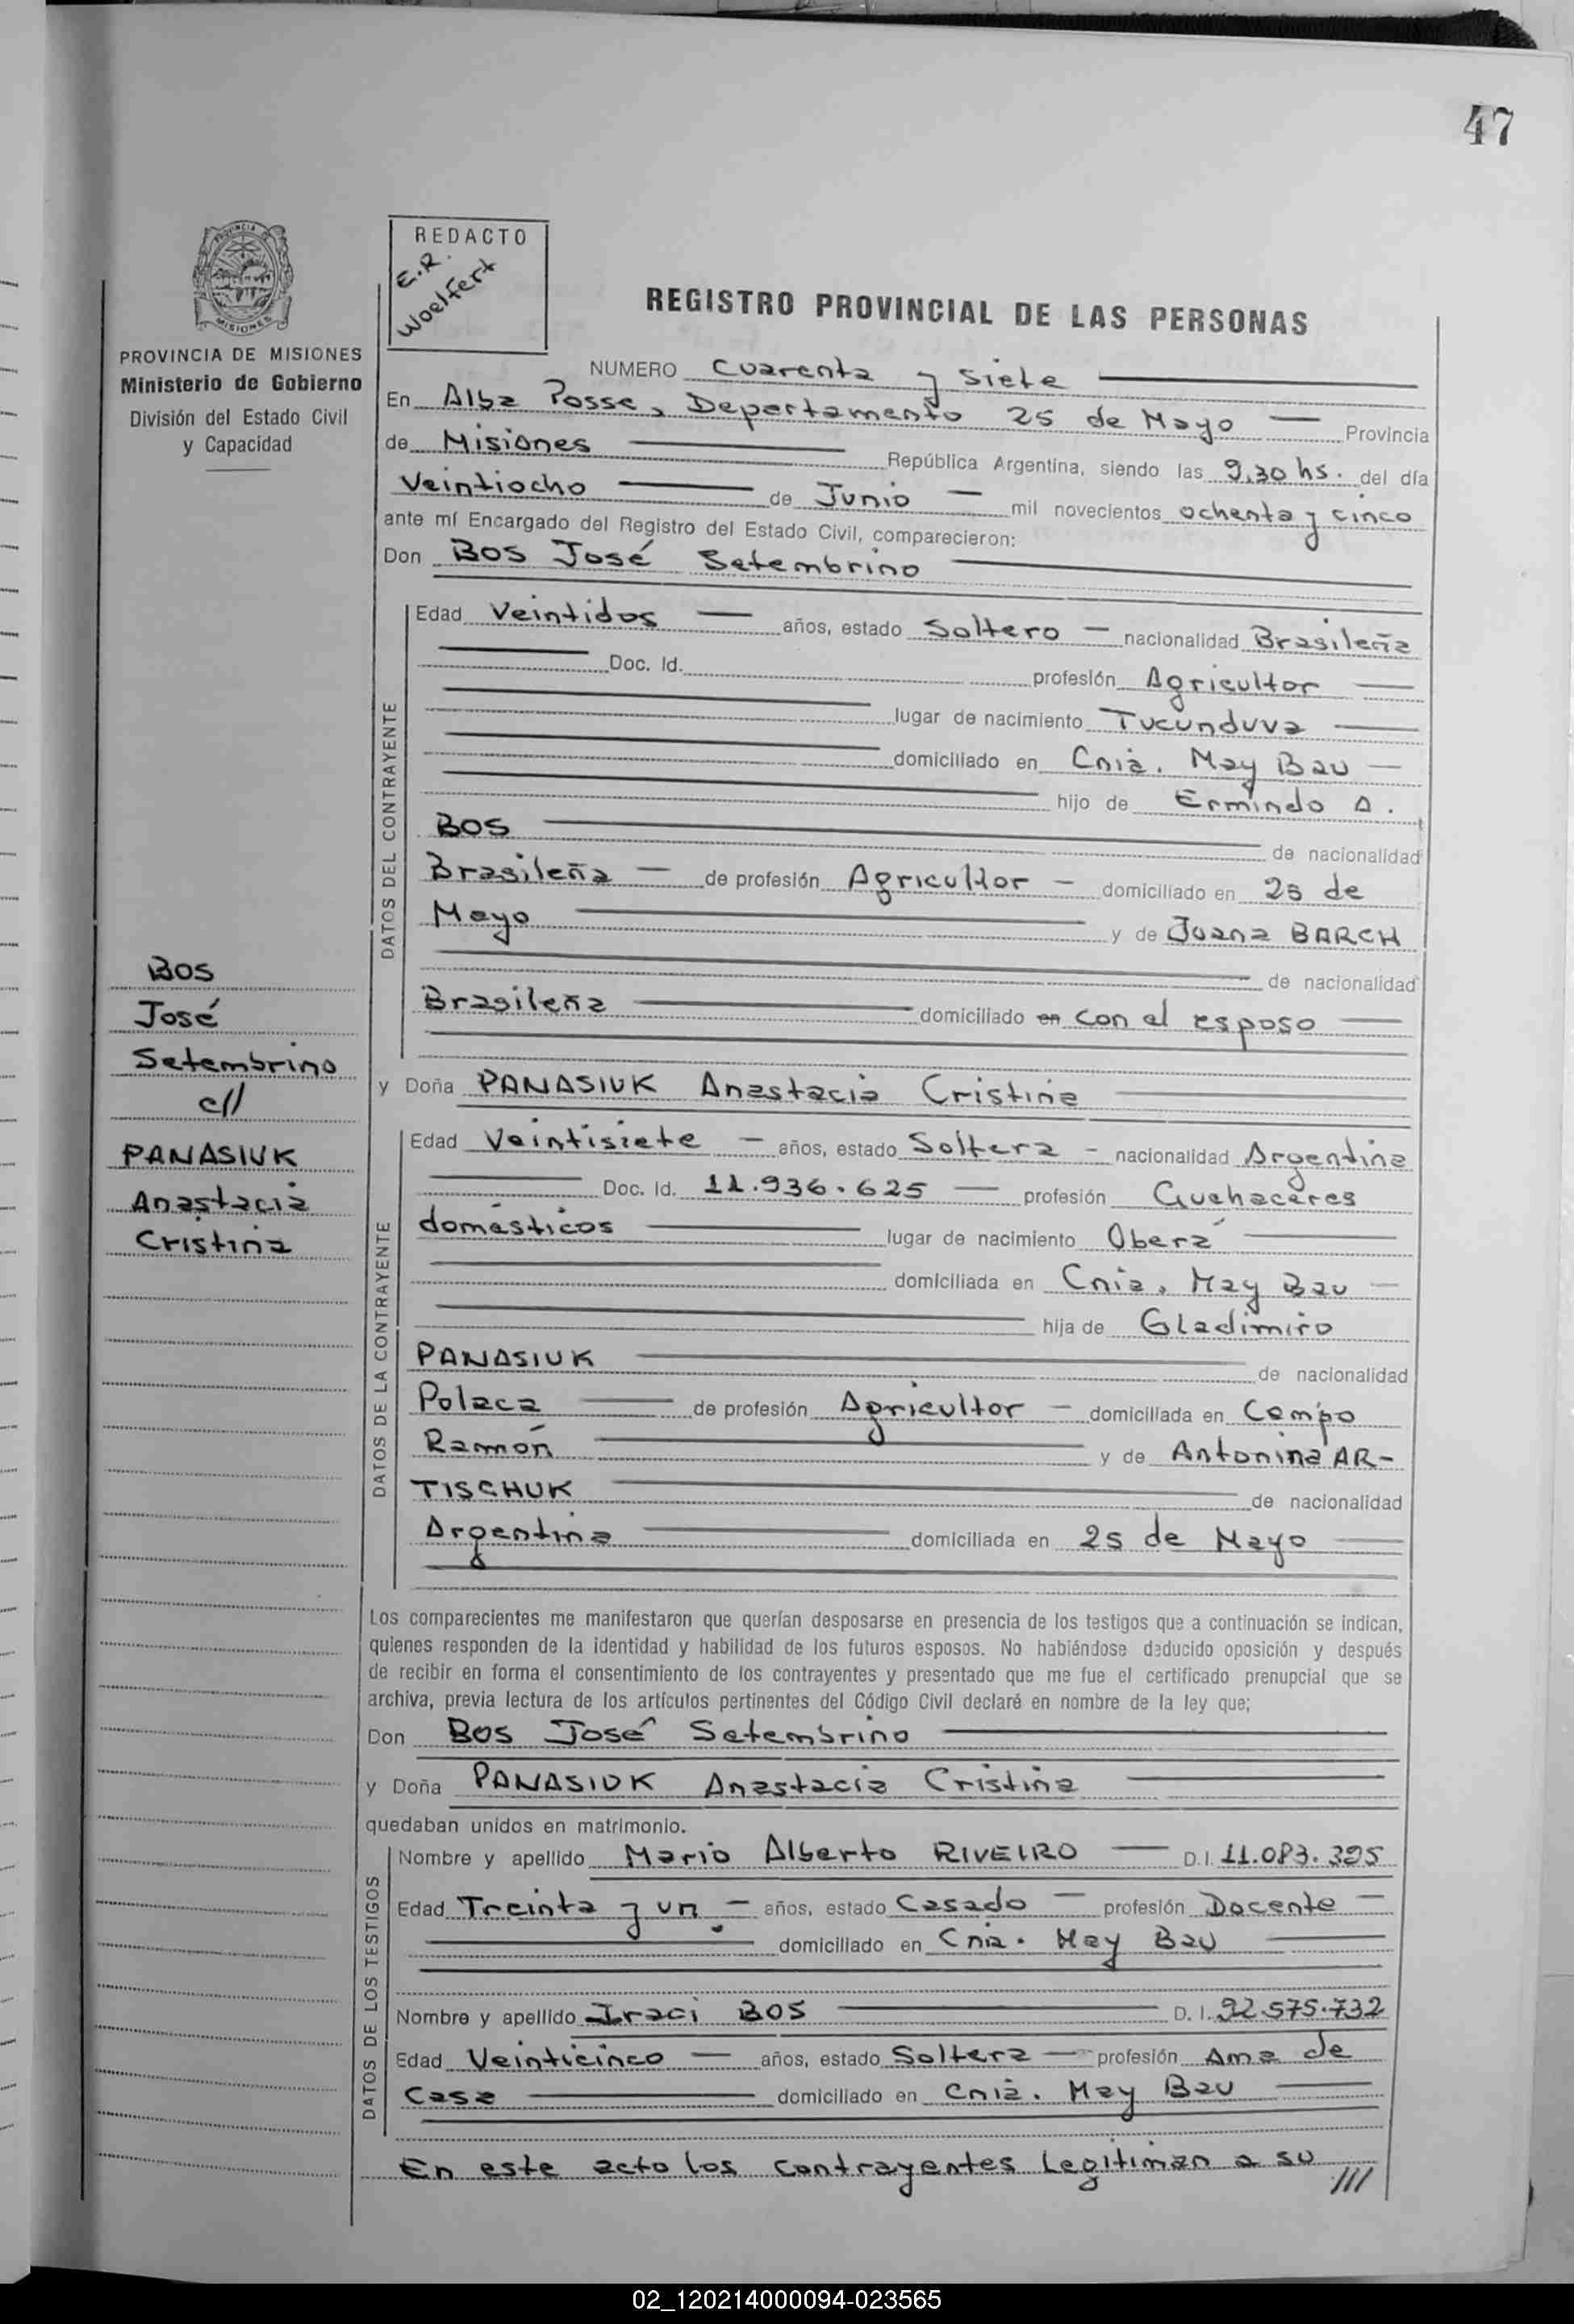 47
PROVINCIA DE MISIONES
PROVINCIA DE MISIONES
Ministerio de Gobierno
División del Estado Civil
y Capacidad
REDACTO
E.R.
Woelfert
REGISTRO PROVINCIAL DE LAS PERSONAS
NUMERO Cuarenta y siete
En Alba Posse, Departamento 25 de Mayo Provincia
de Misiones República Argentina, siendo las 9,30 hs. del día
Veintiocho de Junio mil novecientos ochenta y cinco
ante mí Encargado del Registro del Estado Civil, comparecieron:
Don BOS José Setembrino
DATOS DEL CONTRAYENTE
Edad Veintidos años, estado Soltero nacionalidad Brasileña
Doc. Id. profesión Agricultor
lugar de nacimiento Tucunduva
domiciliado en Cnia. May Bau
hijo de Ermindo A.
BOS de nacionalidad
Brasileña de profesión Agricultor domiciliado en 25 de
Mayo y de Juana BARCH
de nacionalidad
Brasileña domiciliado en con el esposo
y Doña PANASIUK Anastacia Cristina
Bos
José
Setembrino
c//
PANASIUK
Anastacia
Cristina
DATOS DE LA CONTRAYENTE
Edad Veintisiete años, estado Soltera nacionalidad Argentina
Doc. Id. 11.936.625 profesión Quehaceres
domésticos lugar de nacimiento Oberá
domiciliada en Cnia. May Bau
hija de Gladimiro
PANASIUK de nacionalidad
Polaca de profesión Agricultor domiciliada en Campo
Ramón y de Antonina AR-
TISCHUK de nacionalidad
Argentina domiciliada en 25 de Mayo
Los comparecientes me manifestaron que querían desposarse en presencia de los testigos que a continuación se indican,
quienes responden de la identidad y habilidad de los futuros esposos. No habiéndose deducido oposición y después
de recibir en forma el consentimiento de los contrayentes y presentado que me fue el certificado prenupcial que se
archiva, previa lectura de los artículos pertinentes del Código Civil declaré en nombre de la ley que;
Don Bos José Setembrino
y Doña PANASIUK Anastacia Cristina
quedaban unidos en matrimonio.
DATOS DE LOS TESTIGOS
Nombre y apellido Mario Alberto RIVEIRO D.I. 11.083.395
Edad Treinta y un años, estado Casado profesión Docente
domiciliado en Cnia. May Bau
Nombre y apellido Iraci BOS D. I. 92.575.732
Edad Veinticinco años, estado Soltera profesión Ama de
Casa domiciliado en Cnia. May Bau
En este acto los contrayentes legitiman a su ///
02_120214000094-023565